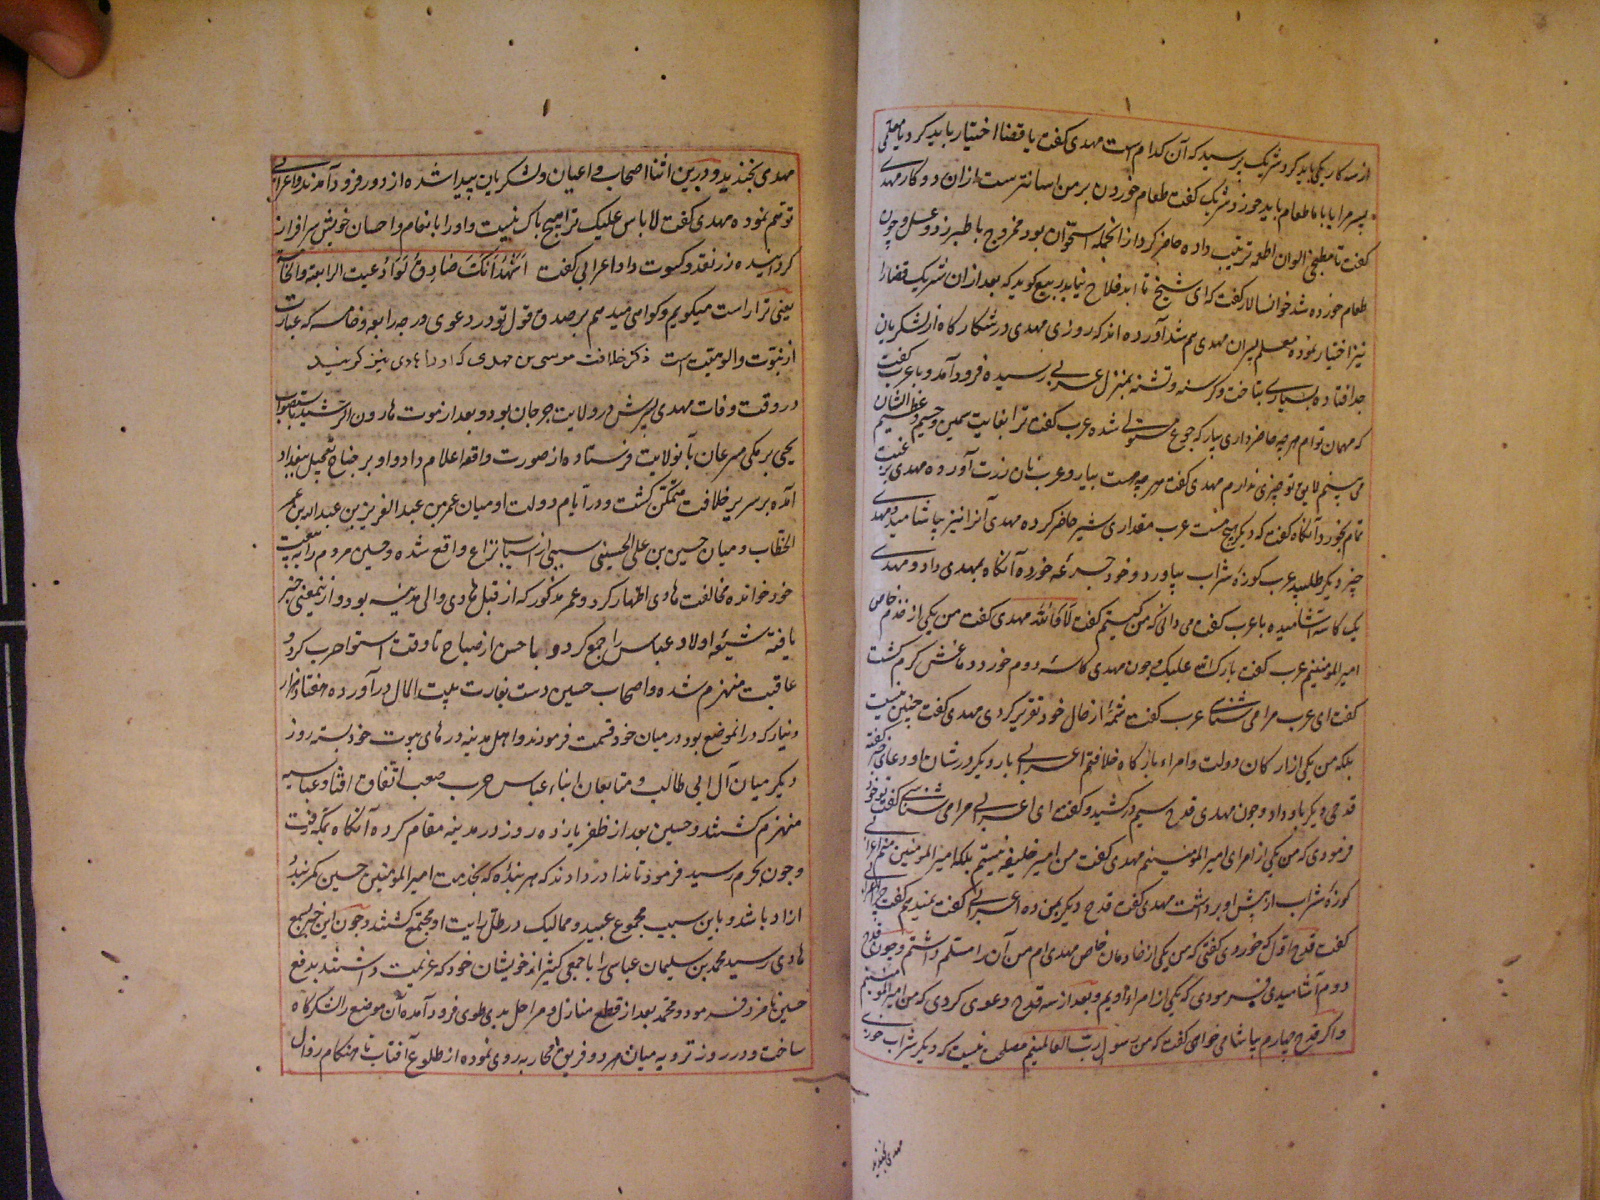 از سه کار یکی باید کرد شریک پرسید که آن کدام است مهدی گفت یا قضا اختیار باید کرد یا معلمی
پسر مرا یا با ما طعام باید خورد شریک گفت طعام خوردن بر من آسانترست ازان دو کار مهدی
گفت تا مطبخی الوان اطعمه ترتیب داده حاضر کرد از انجمله استخوان بود ممزوج با طبرزد و عسل و چون
طعام خورده شد خوانسالار گفت که ای شیخ تا ابد فلاح نیابد ربیع گوید که بعد ازان شریک قضا را
نیز اختیار نموده معلم پسران مهدی هم شد آورده اند که روزی مهدی در شکارگاه از لشکریان
جدا افتاده بسیاری بتاخت و گرسنه و تشنه بمنزل عربی رسیده فرود آمد و با عرب گفت
که مهمان توام هرچه حاضر داری بیار که جوع مستولی شده عرب گفت ترا بغایت سمین و جسیم و عظیم الشان
می بینم لایق تو چیزی ندارم مهدی گفت هرچه هست بیار و عرب نان زرت آورده مهدی برغبت
تمام بخورد آنگاه گفت که دیگر هیچ هست عرب مقداری شیر حاضر کرده مهدی آنرا نیز بیاشامید و مهدی
چیز دیگر طلبید عرب کوزهٔ شراب بیاورد و خود جرعهٔ خورده آنگاه بمهدی داد و مهدی
یک کاسه آشامیده با عرب گفت می دانی که من کیستم گفت لا والله مهدی گفت من یکی از خدم خاص
امیر المومنینم عرب گفت بارک الله علیک و چون مهدی کاسهٔ دوم خورد دماغش گرم گشت
گفت ای عرب مرا می شناسی عرب گفت شمهٔ از حال خود تقریر کردی مهدی گفت چنین نیست
بلکه من یکی از ارکان دولت و امراء بارگاه خلافتم اعرابی بار دیگر در شان او دعای خیر گفته
قدحی دیگر باو داد و چون مهدی قدح سیم در کشید گفت ای اعرابی مرا می شناسی گفت تو خود
فرمودی که من یکی از امرای امیر المومنینم مهدی گفت من امیر خلیفه نیستم بلکه امیر المومنین منم اعرابی
کوزهٔ شراب از پیش او برداشت مهدی گفت قدح دیگر بمن ده اعرابی گفت نمیدهم گفت چرا اعرابی
گفت قدح اول که خوردی گفتی که من یکی از خادمان خاص مهدی ام من آن را مسلم داشتم و چون قدح
دوم آشامیدی فرمودی که یکی از امراء اویم و بعد از سه قدح دعوی کردی که من امیر المومنینم
و اگر قدح چهارم بیاشامی خواهی گفت که من رسول رب العالمینم مصلحت نیست که دیگر شراب خوری
مهدی بخندید
مهدی بخندید و درین اثنا اصحاب و اعیان و لشکریان پیدا شده از دور فرود آمدند و اعرابی
توهم نموده مهدی گفت لا باس علیک ترا هیچ باک نیست و او را بانعام و احسان خویش سرافراز
گردانیده زر نقد و کسوت داد اعرابی گفت اشهد انک صادق و لو ادعیت الرابعة والخامسة
یعنی ترا راست میگویم و گواهی میدهم بر صدق قول تو در دعوی درجه رابعه و خامسه که عبارت
از نبوت و الوهیت است ذکر خلافت موسی بن مهدی که او را هادی نیز گویند
در وقت وفات مهدی پسرش در ولایت جرجان بود و بعد از موت هارون الرشید باستصواب
یحیی برمکی مسرعان بآنولایت فرستاده از صورت واقعه اعلام داد و او بر جناح تعجیل ببغداد
آمده بر سریر خلافت متمکن گشت و در ایام دولت او میان عمر بن عبد العزیز بن عبد الله بن عمر
الخطاب و میان حسین بن علی الحسینی بسببی از اسباب نزاع واقع شده و حسین مردم را به بیعت
خود خوانده مخالفت هادی اظهار کرد و عمر مذکور که از قبل هادی والی مدینه بود و ازینمعنی خبر
یافته شیعهٔ اولاد عباس را جمع کرد و با حسن از صباح تا وقت استوا حرب کرد و
عاقبت منهزم شده و اصحاب حسین دست بغارت بیت المال درآورده هفتاد هزار
دینار که درانموضع بود در میان خود قسمت فرمودند و اهل مدینه درهای بیوت خود بسته روز
دیگر میان آل ابی طالب و متابعان ابناء عباس حرب صعب اتفاق افتاد عباسیه
منهزم گشتند و حسین بعد از ظفر یازده روز در مدینه مقام کرده آنگاه بمکه رفت
و چون بحرم رسید فرمود تا ندا در دادند که هر بنده که بخدمت امیر المومنین حسین کمر بندد
ازاد باشد و باین سبب مجموع عبید و ممالیک در ظل رایت او مجتمع گشتند و چون این خبر بسمع
هادی رسید محمد بن سلیمان عباسی را با جمعی کثیر از خویشان خود که عزیمت داشتند بدفع
حسین نامزد فرمود و محمد بعد از قطع منازل و مراحل بذی طوی فرود آمده آن موضع را لشکرگاه
ساخت و در روز ترویه میان هر دو فریق محاربه روی نموده از طلوع آفتاب تا هنکام زوال